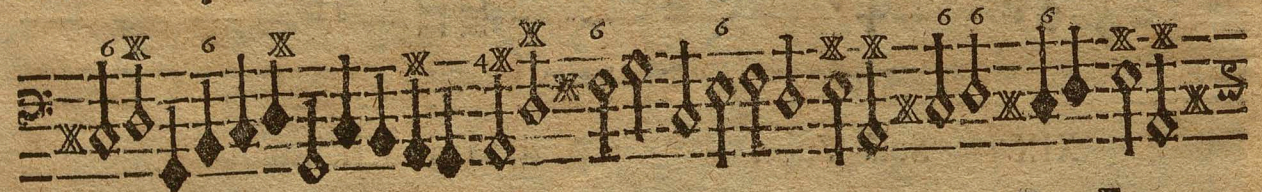 6 6 4 6 6 6 6 6